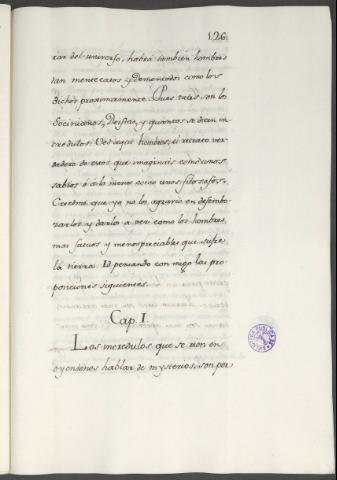 126.
zar del universo, habrá tambien hombres
tan mentecatos y dementados como los
dichos proximamente. Pues tales son los
Socinianos, Deistas, y quantos se dicen in
credulos. Ved aqui hombres, el retrato ver
dadero de esos que imaginais como unos
sabios ó á lo menos como unos filosofos.
Creedme que ya no los agravio en desembo
zarlos y darlos a ver como los hombres
mas fatuos y menospreciables que sufre
la tierra. Id pensando con migo las pro
posiciones siguientes.
Cap. I.
Los incredulos que se rien en
oyendonos hablar de mysterios, son por